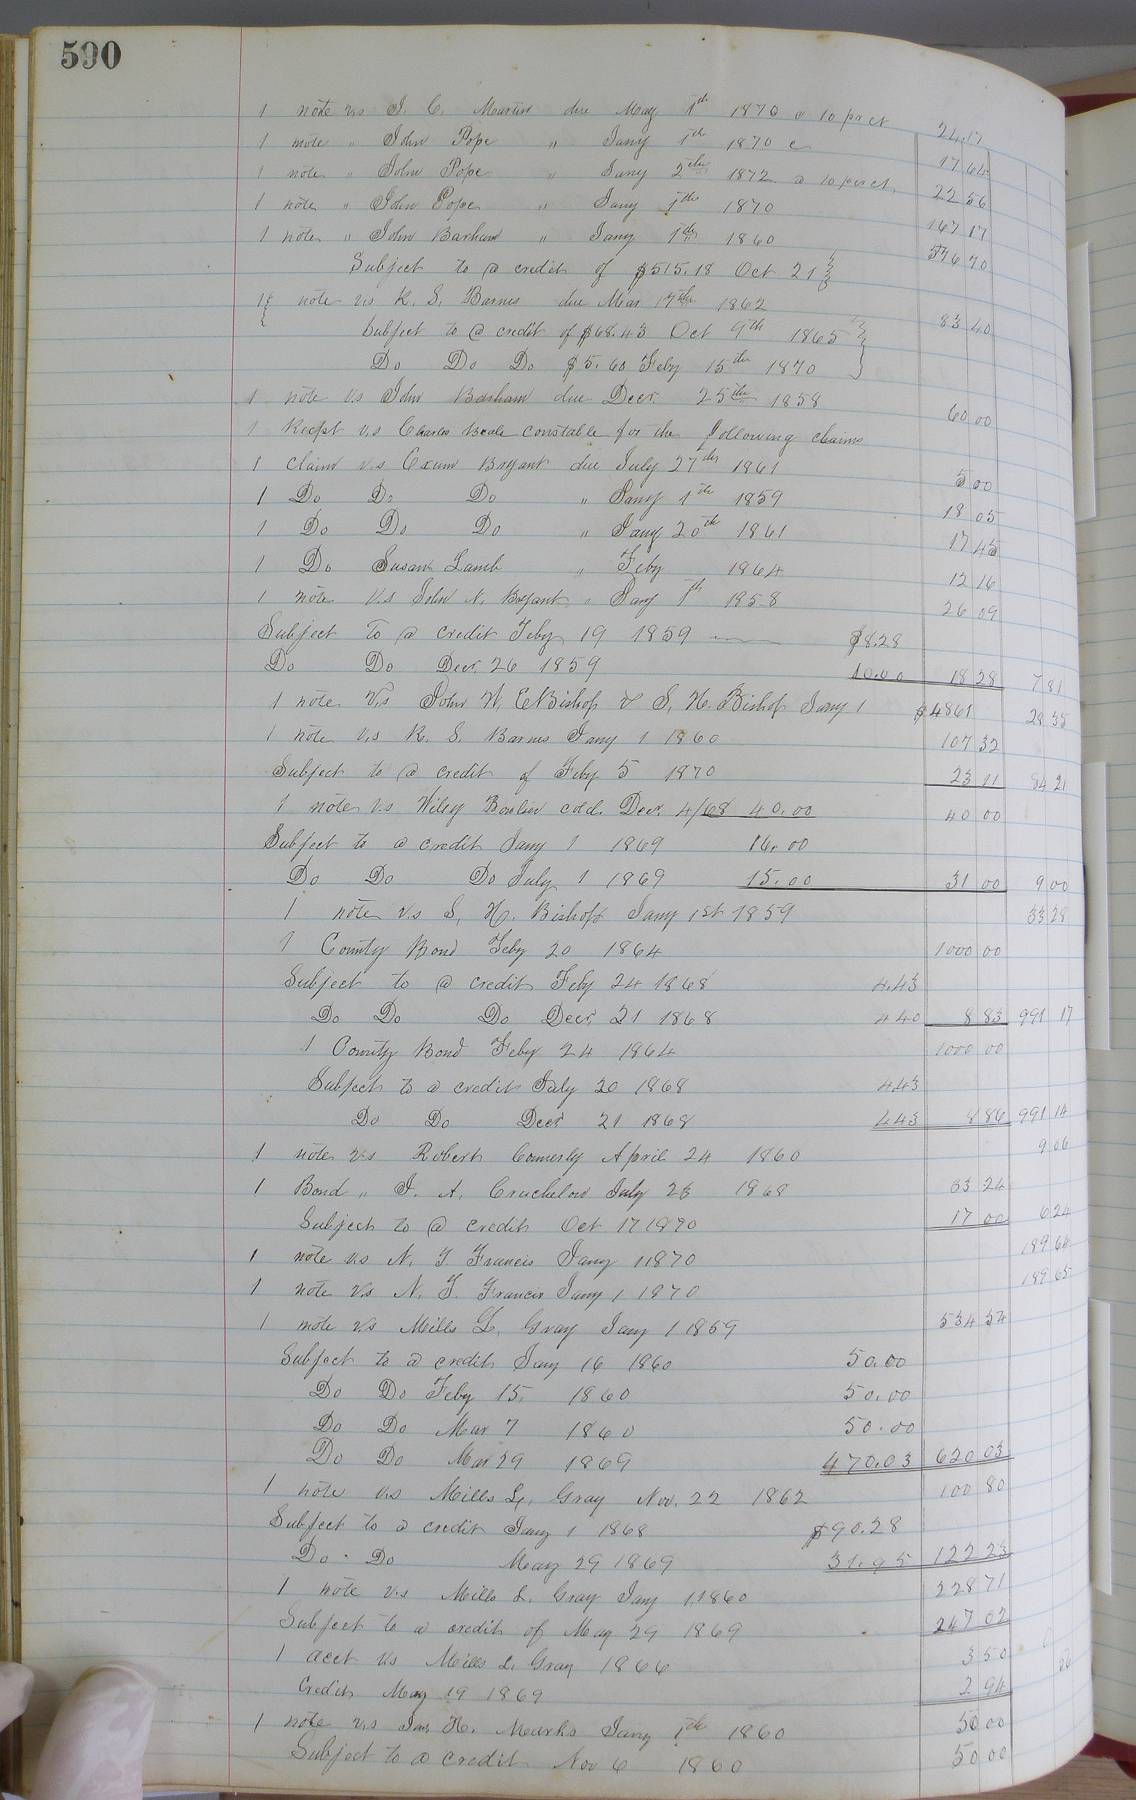 590
1 note vs J. C. Martin due May 1th 1870 @ 10 pr ct 24.17
1 note " John Pope " Jany 1st 1870 c 17 64
1 note " John Pope " Jany 2 1872 @ 10 pr ct 22 56
1 note " John Pope " Jany 1th 1870 167 17
1 note " John Barham " Jany 1th 1860 576 70
Subject to @ credit of $515.18 Oct 21
1 note vs R. S. Barnes due Mar 17th 1862 83 40
Subject to @ credit of $68.43 Oct 9th 1865
Do Do Do $5.60 Feby 15th 1870
1 note vs John Barham due Decr 25th 1858 60 00
1 Recept vs Charles Beale constable for the following claims
1 claim vs Exum Bryant due July 27th 1861 5 00
1 Do Do Do " Jany 1th 1859 18 05
1 Do Do Do " Jany 20th 1861 17 45
1 Do Susan Lamb " Feby 1864 12 16
1 note vs John N. Bryant " Jany 1th 1858 26 09
Subject To @ credit Feby 19 1859 $8.28
Do Do Decr 26 1859 10.00 18 28 7 81
1 note vs John W. E Bishop & S. H. Bishop Jany 1 $4861 28 38
1 note vs R. S. Barnes Jany 1 1860 107 32
Subject to @ credit of Feby 5 1870 23 11 84 21
1 note vs Wiley cold. Decr 4/68 40.00 40 00
Subject to a credit Jany 1 1869 16.00
Do Do Do July 1 1869 15.00 31 00 9 00
1 note vs S. H. Bishop Jany 1st 1859 33 28
1 County Bond Feby 20 1864 1000 00
Subject to @ credit Feby 24 1868 4.43
Do Do Do Decr 21 1868 4 40 8 83 991 17
1 County Bond Feby 24 1864 1000 00
Subject to a credit July 20 1868 4 43
Do Do Decr 21 1868 4.43 8 86 991 14
1 note vs Robert Connerly April 24 1860 9 06
1 Bond " J. A. July 23 1868 23 24
Subject to @ credit Oct 17 1870 17 00 6 24
1 note vs N. T. Francis Jany 1 1870 189 64
1 note vs N. T. Francis Jany 1 1870 189 65
1 note vs Mills L. Gray Jany 1 1859 534 54
Subject to a credit Jany 16 1860 50.00
Do Do Feby 15. 1860 50.00
Do Do Mar 7 1860 50.00
Do Do Mar 29 1869 470.03 620 03
1 note vs Mills L. Gray Nov. 22 1862 100 80
Subject to a credit Jany 1 1868 $90.28
Do Do May 29 1869 31.95 122 23
1 note vs Mills L. Gray Jany 1, 1860 228 71
Subject to a credit of May 29 1869 247 02
1 acct vs Mills L. Gray 1866 3 50
Credit May 19 1869 2 94
1 note vs Jas. H. Marks Jany 1th 1860 50 00
Subject to a credit Nov 6 1860 50 00